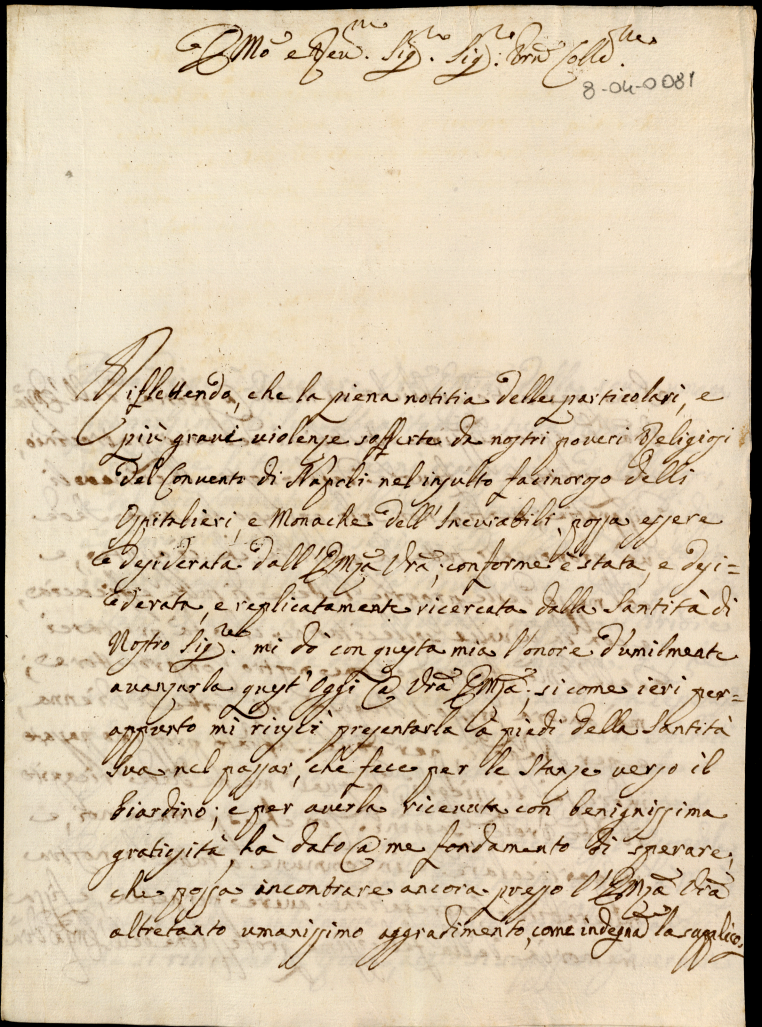 Em̃o e Reu.mo Sig.re Sig.re Prñ Coll.mo
8-04-0081
Riflettendo, che la piena notitia delle particolari, e
più graui uiolenze sofferte da nostri poueri Religiosi
del Conuento di Napoli nel insulto facinoroso delli
Ospitalieri, e Monache dell'Incurabili, possa essere
desiderata dall'Em̃za Vr̃a, conforme è stata, e desi=
derata, e replicatamente ricercata dalla Santità di
Nostro Sig.re mi dò con questa mia l'onore d'umilmente
auanzarla quest'Oggi a Vr̃a Em̃za; si come ieri per=
appunto mi riuscì presentarla à piedi della Santità
sua nel passar, che fece per le stanze uerso il
Giardino; e per auerla riceuuta con benignissima
gratiosità, hà dato a me fondamento di sperare,
che possa incontrare ancora presso l'Em̃za Vr̃a
altretanto umanissimo aggradimento, come la supplico,